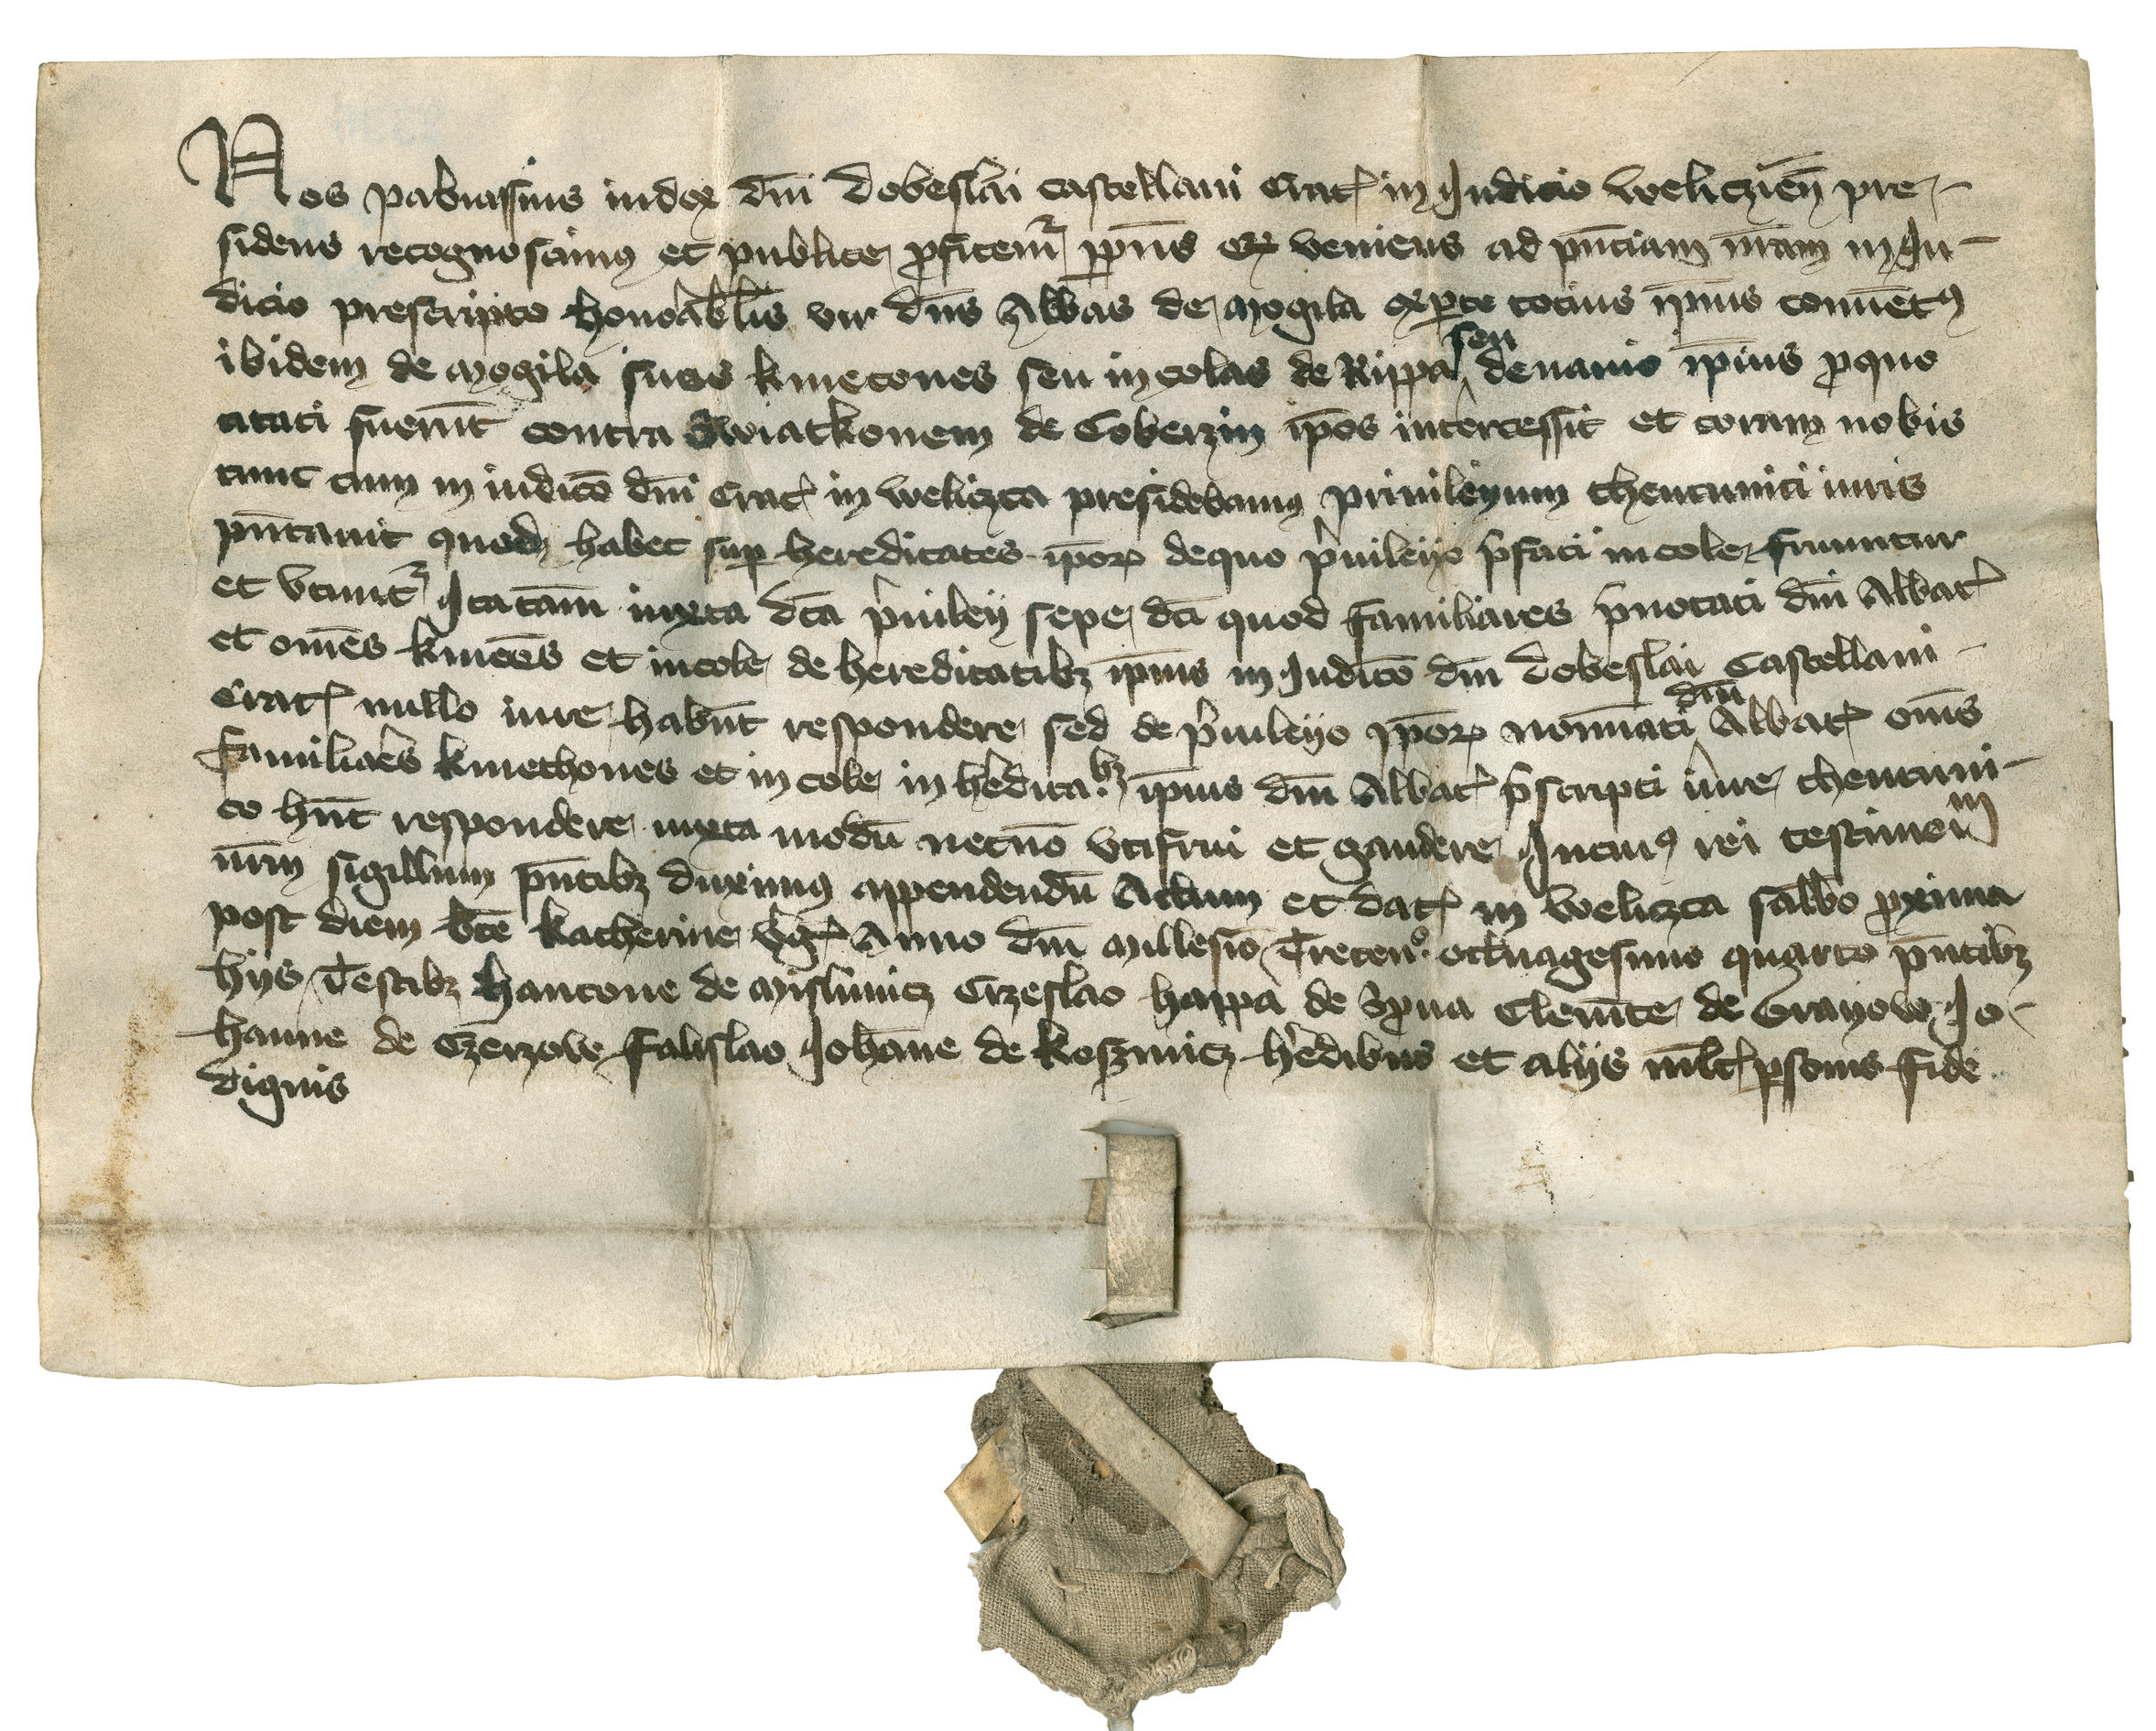 Nos pabiassius iudex dni dobeslai castellani Crac in Judicio weliczien pre-
sidens recognoscimus et publice profitemr ppns qr veniens ad pnciam nram in Ju-
dicio prescripto honorablis vir dns Abbas de mogila exparte tocius ipius conuetus
ibidem de mogila suos kmetones seu incolas de Rippa seu denanio ipius pro quo
citati fuerut contra Swiatkonem de Coberzin ipos intercessit et coram nobis
tunc cum in iudico dni Crac in weliczca presidebamus priuileyum theutunici iuris
pntauit quod habet sup hereditates ipor dequo priuileyo pfati incole fruuntur
et vtuntr Ita tam iuxta dca priuiley sepe dci quod familiares pnotati dni Abbat
et omes kmeces et incole de hereditatibz ipius in Judico dni dobeslai Castellani
Crac nullo iure habut respondere sed de priuileyo ipor nomiati dni Abbat omes
familiaes kmethones et incole in heditabz ipius dni Abbat pscripti iure theutuni-
co hnt respondere iuxta modu necno vtifrui et gaudere Jncuius rei testimoni
nrm sigillum pntibz duximus appendendu Actum et dat in weliczca sabbo proxima
post diem bte katherine vg Anno dni millesio Trecen° octuagesimo quarto pntibz
hijs Testibz hancone de mislimicz Crzeslao happa de Clemte de Grayow Jo-
hanne de Czerzow falislao Johane de Koszmicz hedibus et alijs mlt psonis fide
dignis